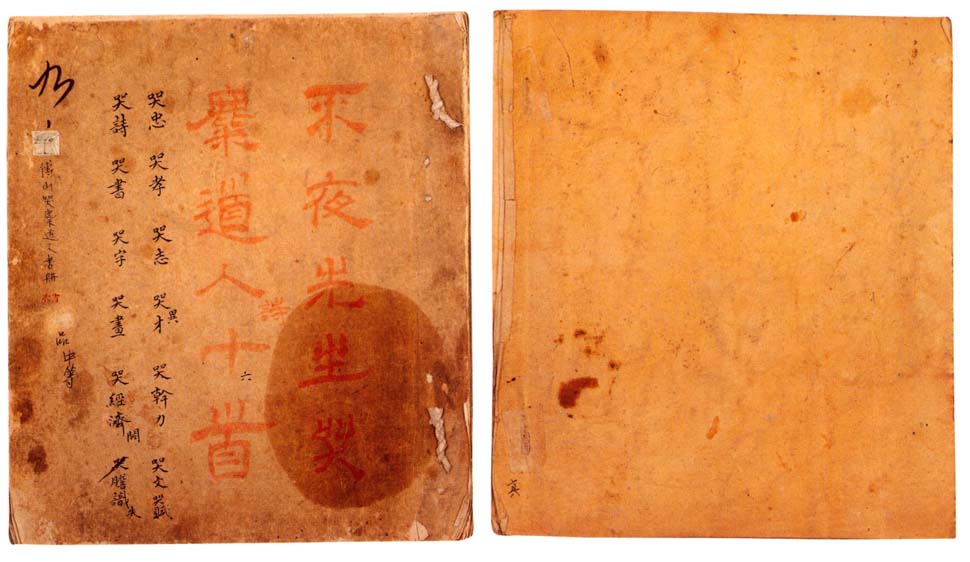 不夜先生哭
糜道人十六首
詩
哭忠 哭孝 哭志 哭異才 哭幹力 哭文 哭賦
哭詩 哭書 哭字 哭畫 哭經濟 哭膽識
傅山哭糜道人書册
品中等
真